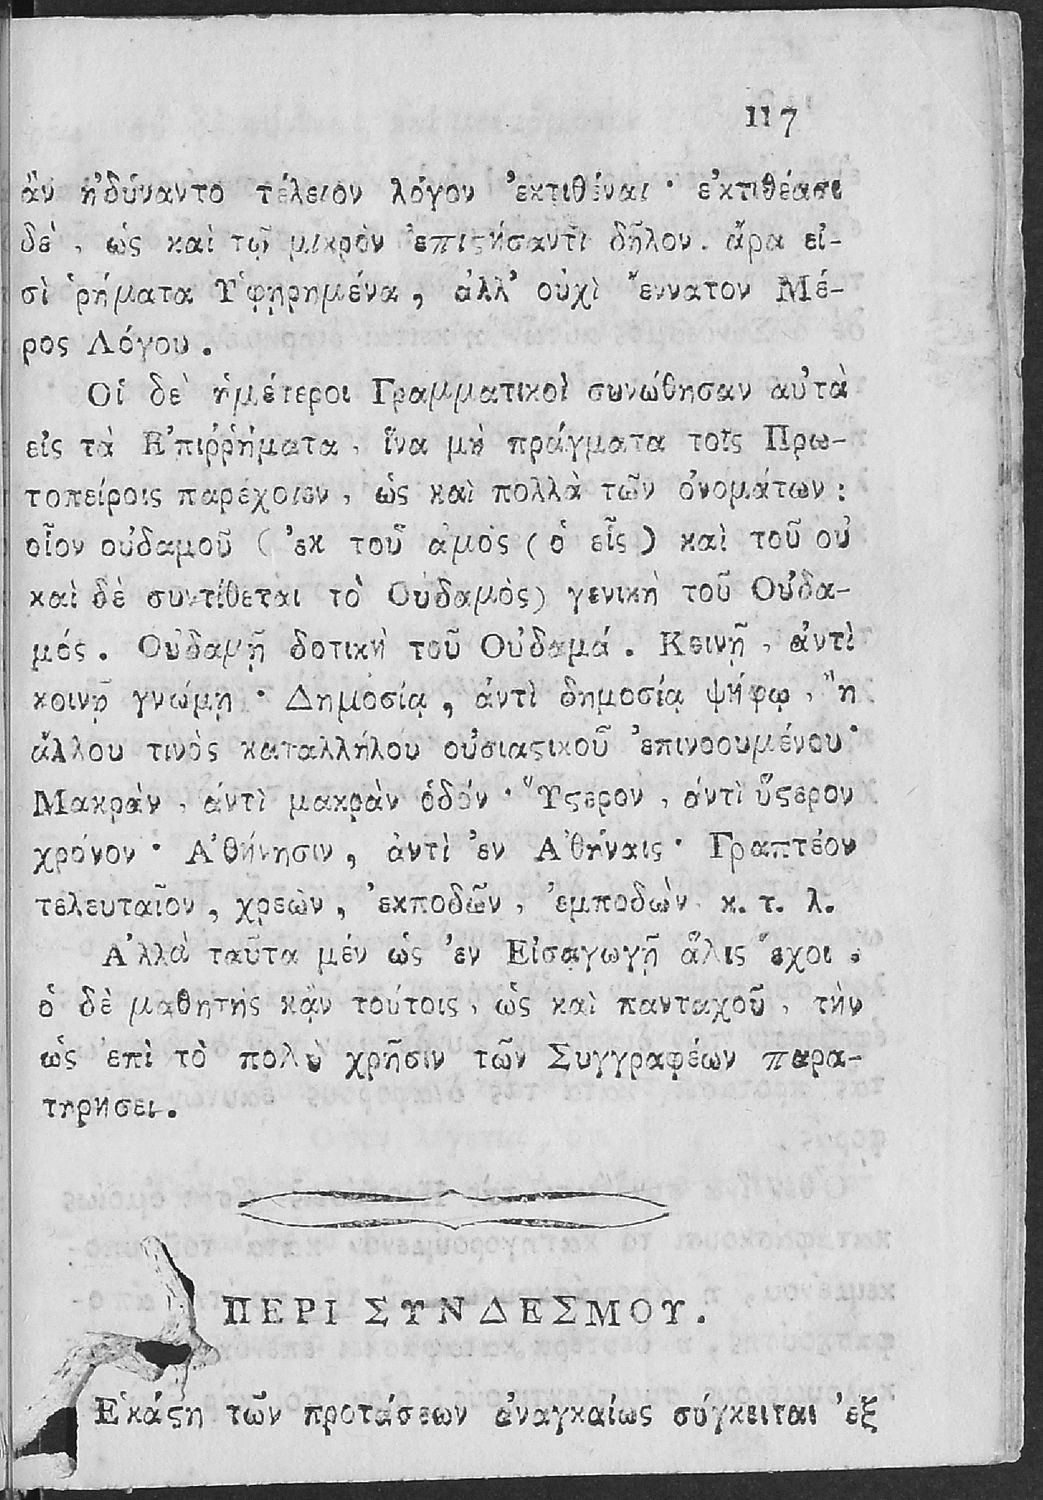 117
ἂν ἠδύναντο τέλειον λόγον ἐκτιθέναι · ἐκτιθέασι
δὲ, ὡς καὶ τῷ μικρὸν ἐπιϛήσαντι δῆλον. ἄρα εἰ-
σὶ ῥήματα Ὑφῃρημένα, ἀλλ' οὐχὶ ἔννατον Μέ-
ρος Λόγου.
Οἱ δὲ ἡμέτεροι Γραμματικοὶ συνώθησαν αὐτὰ
εἰς τὰ Ἐπιῤῥήματα, ἵνα μὴ πράγματα τοῖς Πρω-
τοπείροις παρέχοιεν, ὡς καὶ πολλὰ τῶν ὀνομάτων:
οἷον οὐδαμοῦ (ἐκ τοῦ ἀμὸς (ὁ εἷς) καὶ τοῦ οὐ
καὶ δὲ συντίθεται τὸ Οὐδαμὸς) γενικὴ τοῦ Οὐδα-
μός. Οὐδαμῇ δοτικὴ τοῦ Οὐδαμά. Κοινῇ, ἀντὶ
κοινῇ γνώμῃ · Δημοσίᾳ, ἀντὶ δημοσίᾳ ψήφῳ, ἢ
ἄλλου τινὸς καταλλήλου οὐσιαϛικοῦ ἐπινοουμένου ·
Μακρὰν, ἀντὶ μακρὰν ὁδόν · Ὕϛερον, ἀντὶ ὕϛερον
χρόνον · Ἀθήνησιν, ἀντὶ ἐν Ἀθήναις · Γραπτέον
τελευταῖον, χρεὼν, ἐκποδῶν, ἐμποδὼν κ. τ. λ.
Ἀλλὰ ταῦτα μέν ὡς ἐν Εἰσαγωγῇ ἅλις ἔχοι.
ὁ δὲ μαθητὴς κᾂν τούτοις, ὡς καὶ πανταχοῦ, τὴν
ὡς ἐπὶ τὸ πολὺ χρῆσιν τῶν Συγγραφέων παρα-
τηρήσει.
ΠΕΡΙ ΣΥΝΔΕΣΜΟΥ.
Ἑκάϛη τῶν προτάσεων ἀναγκαίως σύγκειται ἐξ